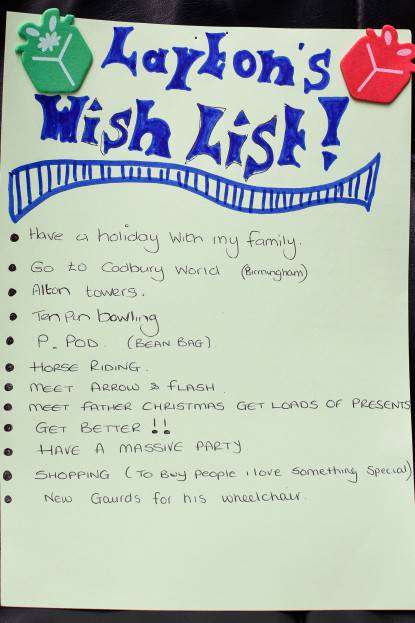 Layton's
Wish List!
Have a holiday with my family.
Go to Cadbury World (Birmingham)
Alton towers.
Ten Pin bowling
P. POD. (BEAN BAG)
HORSE RIDING.
MEET ARROW & FLASH
MEET FATHER CHRISTMAS GET LOADS OF PRESENTS
GET BETTER !!
HAVE A MASSIVE PARTY
SHOPPING (To Buy people i love something special)
New Gaurds for his wheelchair.